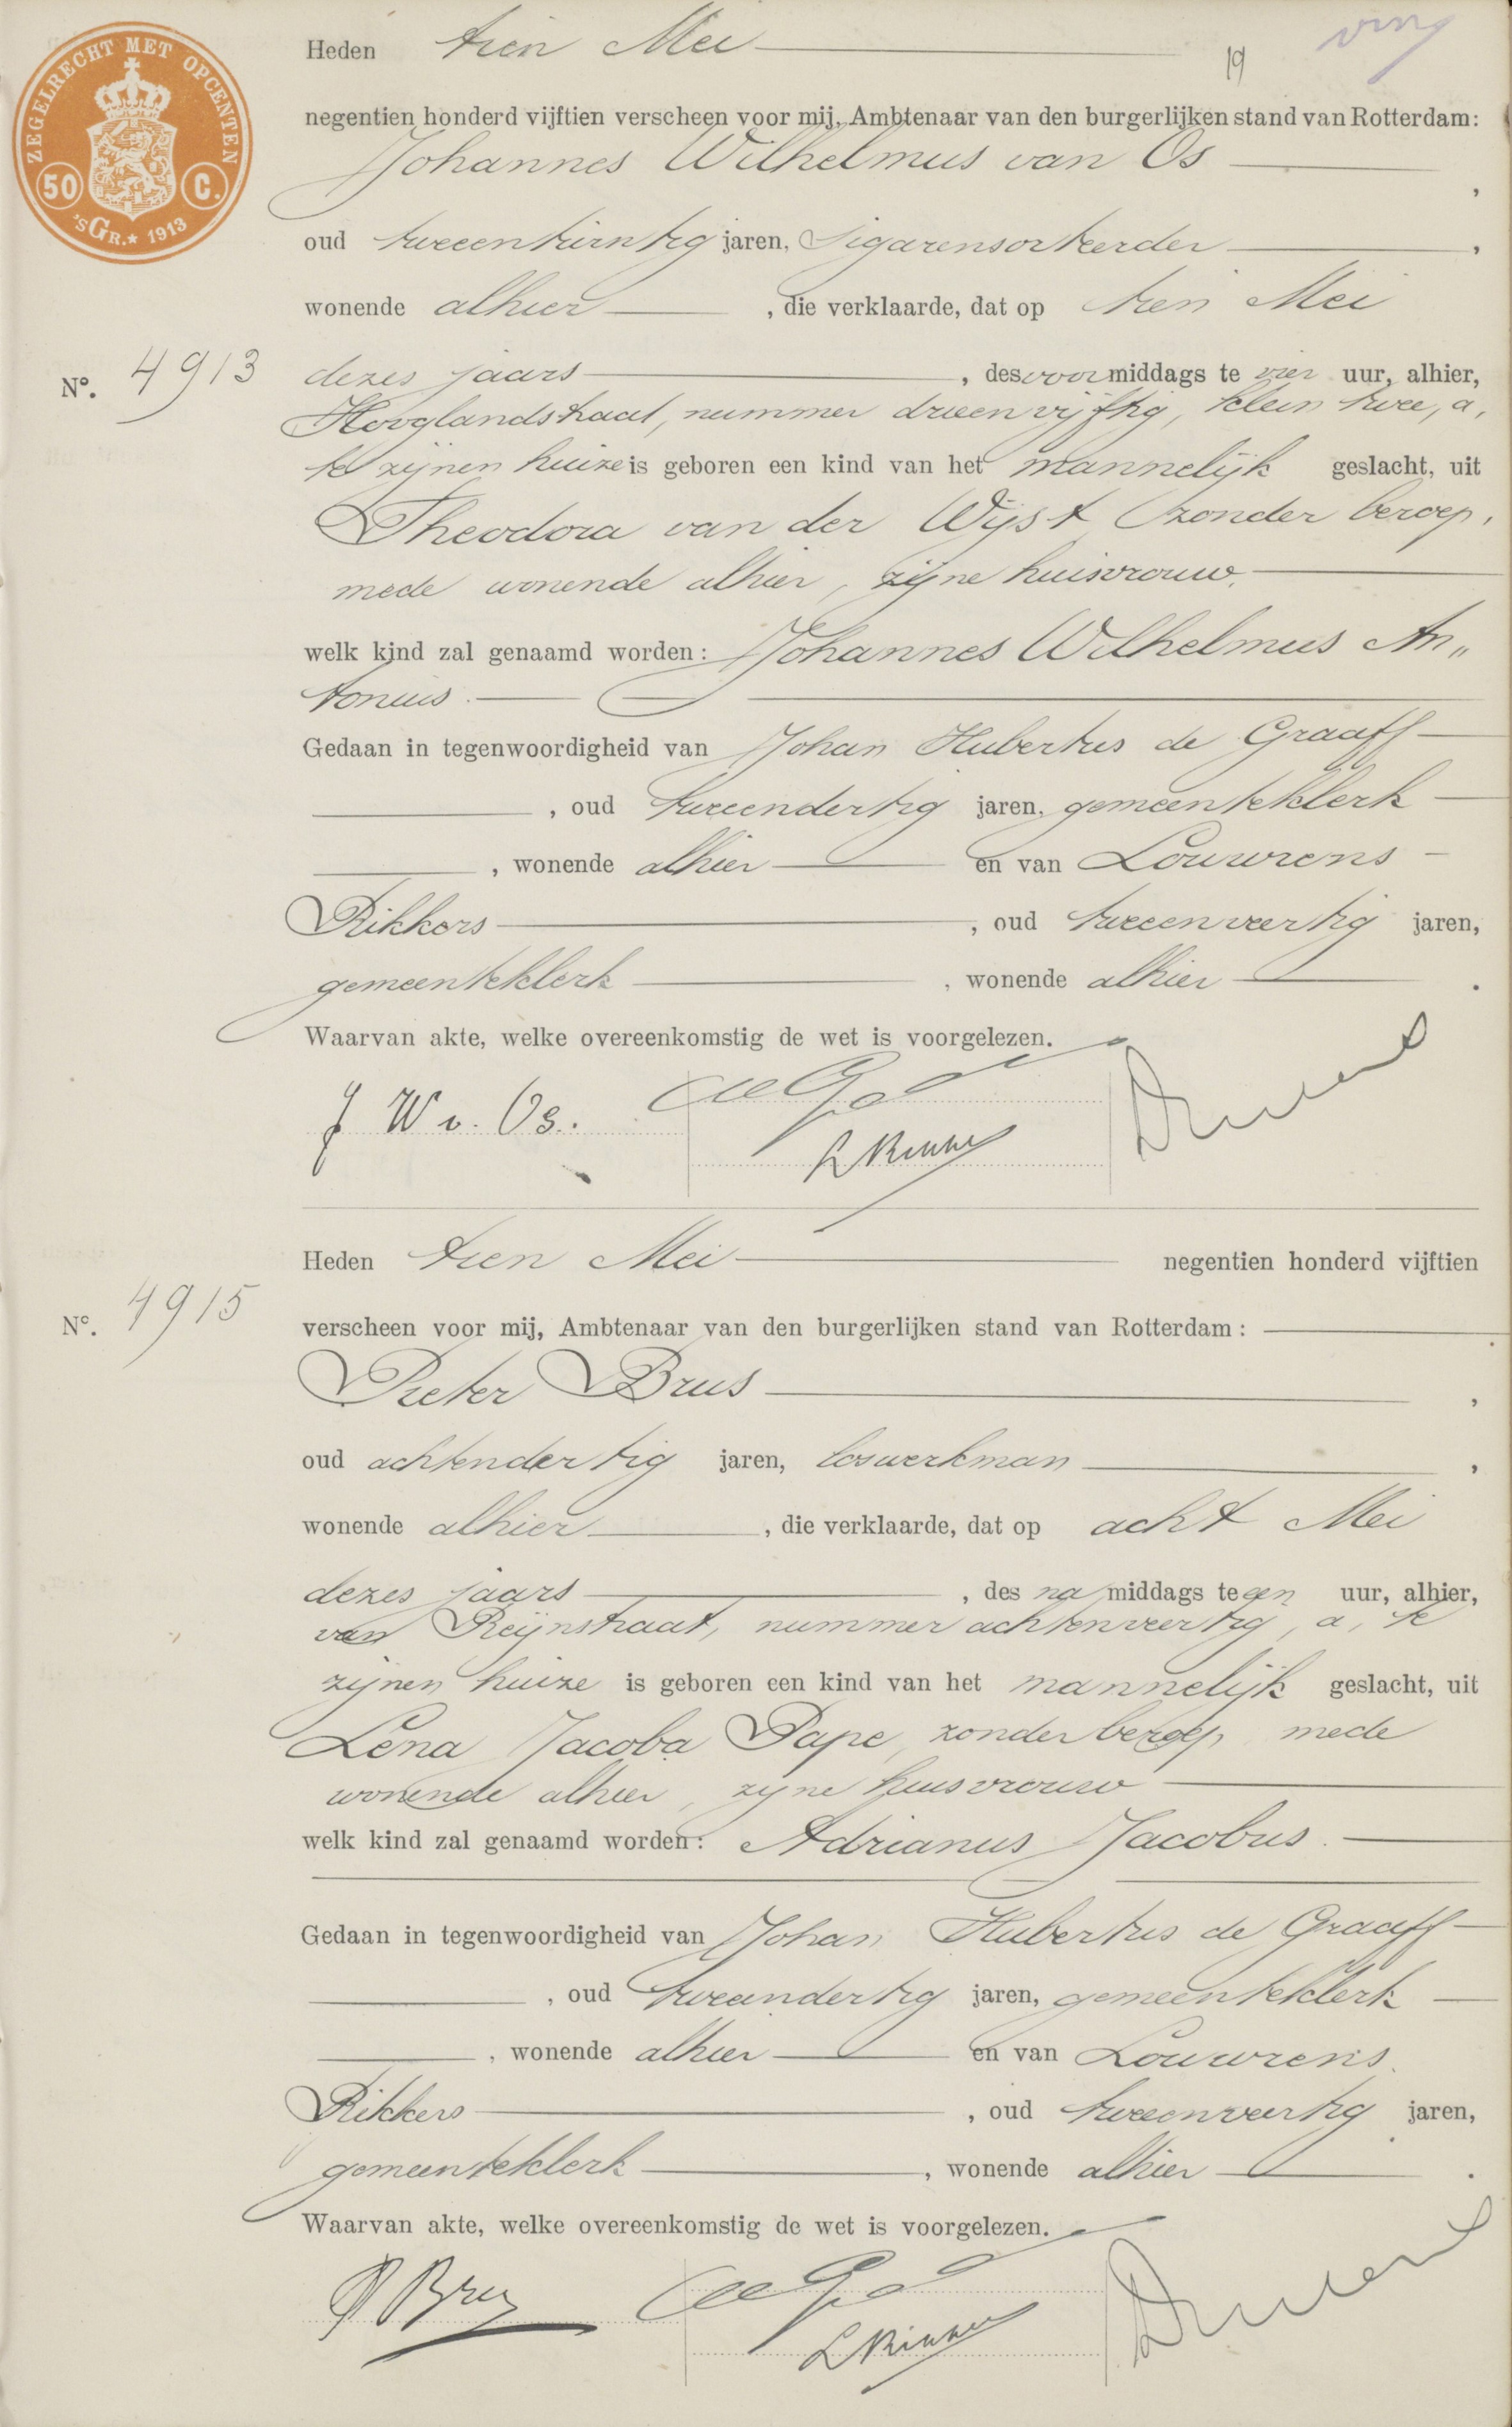 ZEGELRECHT MET OPCENTEN
50 C.
'sGR.★ 1913
Heden tien Mei
19
negentien honderd vijftien verscheen voor mij, Ambtenaar van den burgerlijken stand van Rotterdam:
Johannes Wilhelmus van Os ,
oud tweeentwintig jaren, Sigarensorteerder ,
wonende alhier , die verklaarde, dat op tien Mei
No. 4913 dezes jaars , des voormiddags te vier uur, alhier,
Hooglandstraat, nummer drieenvijftig, klein twee, a,
te zijnen huize is geboren een kind van het mannelijk geslacht, uit
Theodora van der Wijst, zonder beroep,
mede wonende alhier, zijne huisvrouw,
welk kind zal genaamd worden: Johannes Wilhelmus An„
tonius.
Gedaan in tegenwoordigheid van Johan Hubertus de Graaff
, oud tweeendertig jaren, gemeenteklerk
, wonende alhier en van Louwrens
Rikkers , oud tweeenveertig jaren,
gemeenteklerk , wonende alhier .
Waarvan akte, welke overeenkomstig de wet is voorgelezen.
J W v. Os.
Heden tien Mei negentien honderd vijftien
No. 4915
verscheen voor mij, Ambtenaar van den burgerlijken stand van Rotterdam:
Pieter Brus ,
oud achtendertig jaren, loswerkman ,
wonende alhier , die verklaarde, dat op acht Mei
dezes jaars , des namiddags te een uur, alhier,
van Reijnstraat, nummer achtenveertig, a, te
zijnen huize is geboren een kind van het mannelijk geslacht, uit
Lena Jacoba Pape, zonder beroep, mede
wonende alhier, zijne huisvrouw
welk kind zal genaamd worden: Adrianus Jacobus.
Gedaan in tegenwoordigheid van Johan Hubertus de Graaff
, oud tweeendertig jaren, gemeenteklerk
, wonende alhier en van Louwrens
Rikkers , oud tweeenveertig jaren,
gemeenteklerk , wonende alhier .
Waarvan akte, welke overeenkomstig de wet is voorgelezen.
P Brus